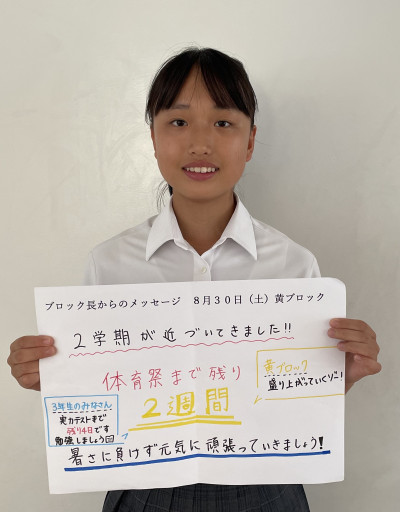 ブロック長からのメッセージ 8月30日(土)黄ブロック
2学期が近づいてきました!!
体育祭まで残り
2週間
黄ブロック
盛り上がっていくりこ!
3年生のみなさん
実力テストまで
残り4日です
勉強しましょう
暑さに負けず元気に頑張っていきましょう!